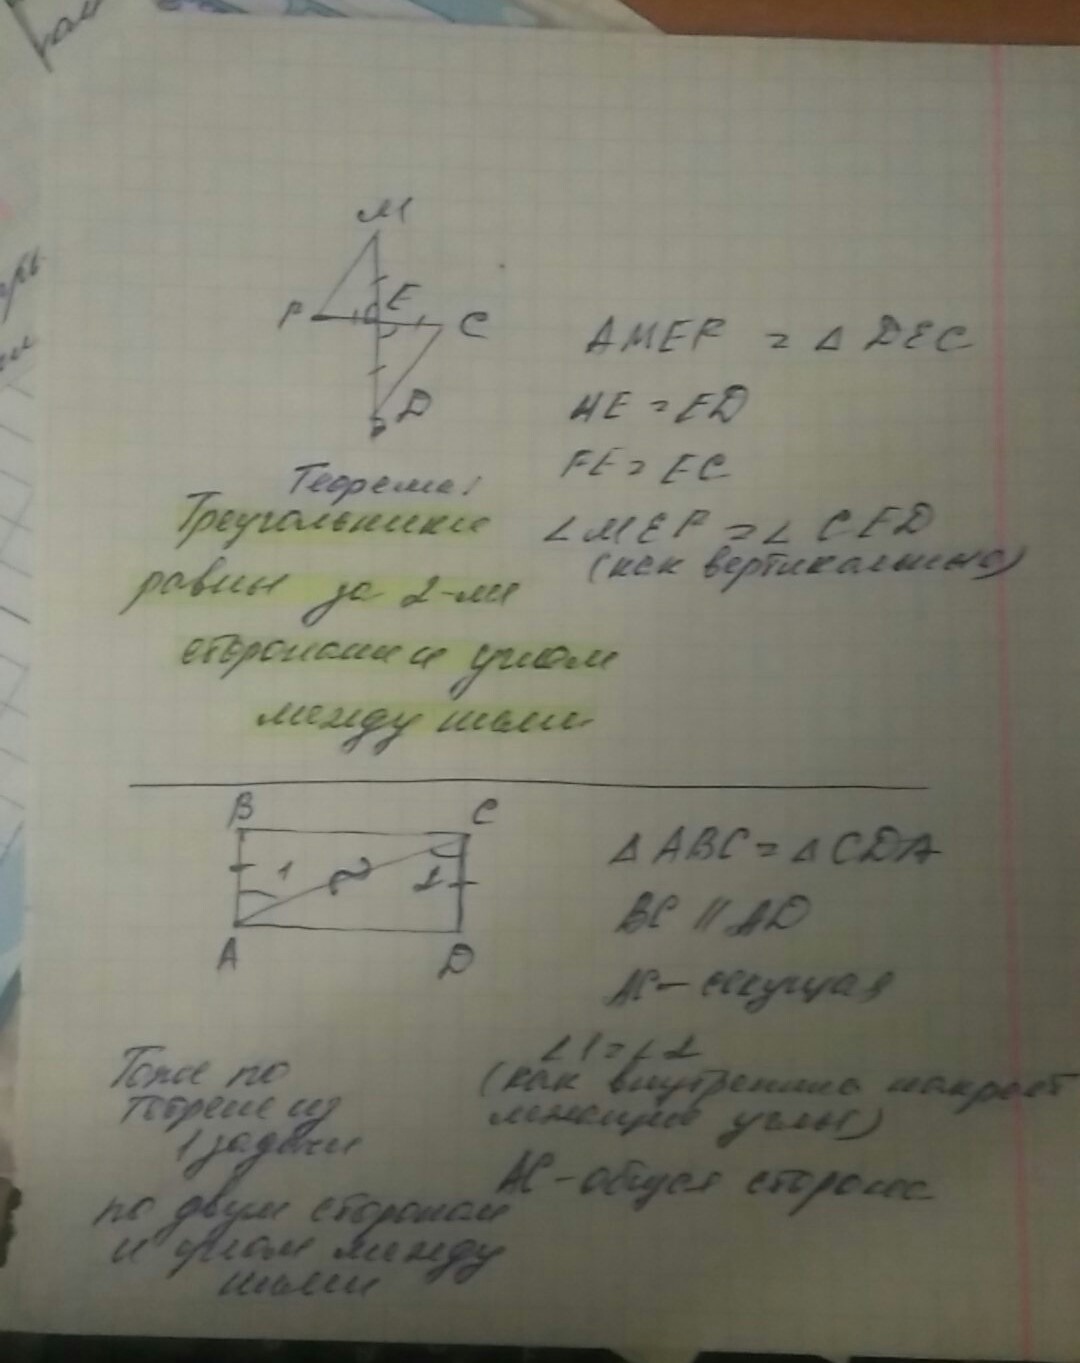 M
E
P
C
D
△MEP = △DEC
ME = ED
PE = EC
∠MEP = ∠CED
(как вертикальные)
Теорема:
Треугольники
равны за 2-мя
сторонами и углом
между ними
B
C
1
2
A
D
△ABC = △CDA
BC || AD
AC — секущая
∠1 = ∠2
(как внутренние накрест
лежащие углы)
AC - общая сторона
Тоже по
теореме из
1 задачи
по двум сторонам
и углом между
ними